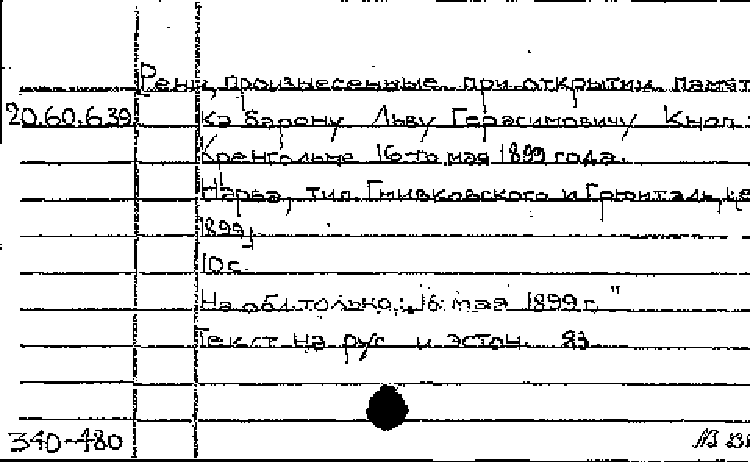 Речи, произнесенные при открытии памят
20.60.639
ка барону Льву Герасимовичу Кноп
Кренгольме 16-го мая 1899 года.
Нарва, тип. Гнивковского и Грюнталь,
1899,
10 с.
На обл. только: "16 мая 1899 г."
Текст на рус. и эстон. яз.
340-480